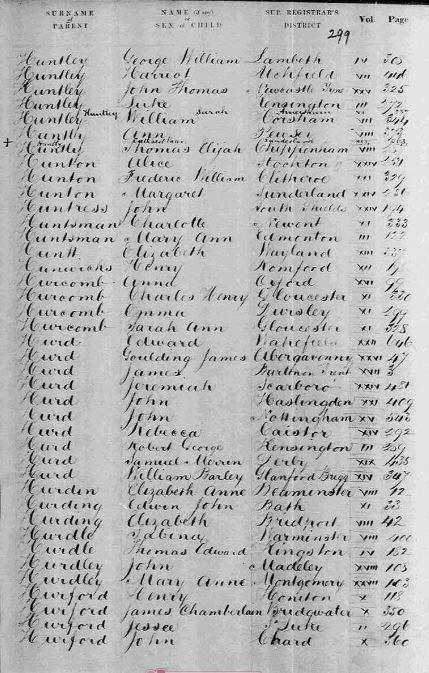 SURNAME of PARENT NAME (if any) or SEX of CHILD SUP. REGISTRAR'S DISTRICT Vol. Page
299
Huntley George William Lambeth IV 305
Huntley Harriot Uckfield VII
Huntley John Thomas Newcastle Tyne XXV 225
Huntley Luke Kensington III
Huntley Sarah
Huntley William Horsham VII
Huntly Ann
Huntly Thomas Elijah Chippenham VIII
Hunton Alice Stockton XXIV
Hunton Frederic William Clitheroe XXI
Hunton Margaret Sunderland XXIV
Huntress John South Shields XXIV 194
Huntsman Charlotte Newent XI 333
Huntsman Mary Ann Edmonton III 122
Huntt Elizabeth Wayland XIII
Henry Romford XII
Hurcomb Anna Oxford XVI
Hurcomb Charles Henry Gloucester XI 320
Hurcomb Emma Dursley XI
Hurcomb Sarah Ann Gloucester XI 328
Hurd Edward Wakefield XXII 646
Hurd Goulding James Abergavenny XXVI 47
Hurd James Burton on Trent XVII 3
Hurd Jeremiah Scarboro XXIV 481
Hurd John Haslingden XXI 409
Hurd John Nottingham XV 542
Hurd Rebecca Caistor XIV 292
Hurd Robert George Kensington III 259
Hurd Samuel Derby XIX 435
Hurd William Farley Glanford Brigg XIV 347
Hurden Elizabeth Anne Beaminster VIII 12
Hurding Edwin John Bath XI 33
Hurding Elizabeth Bridport VIII 42
Hurdle Sabina Warminster VIII 400
Hurdle Thomas Edward Kingston IV 152
Hurdley John Madeley XVIII 105
Hurdley Mary Anne Montgomery XXVII 103
Hurford Henry Honiton X 118
Hurford James Chamberlain Bridgwater X 350
Hurford Jessee St Luke II 296
Hurford John Chard X 360